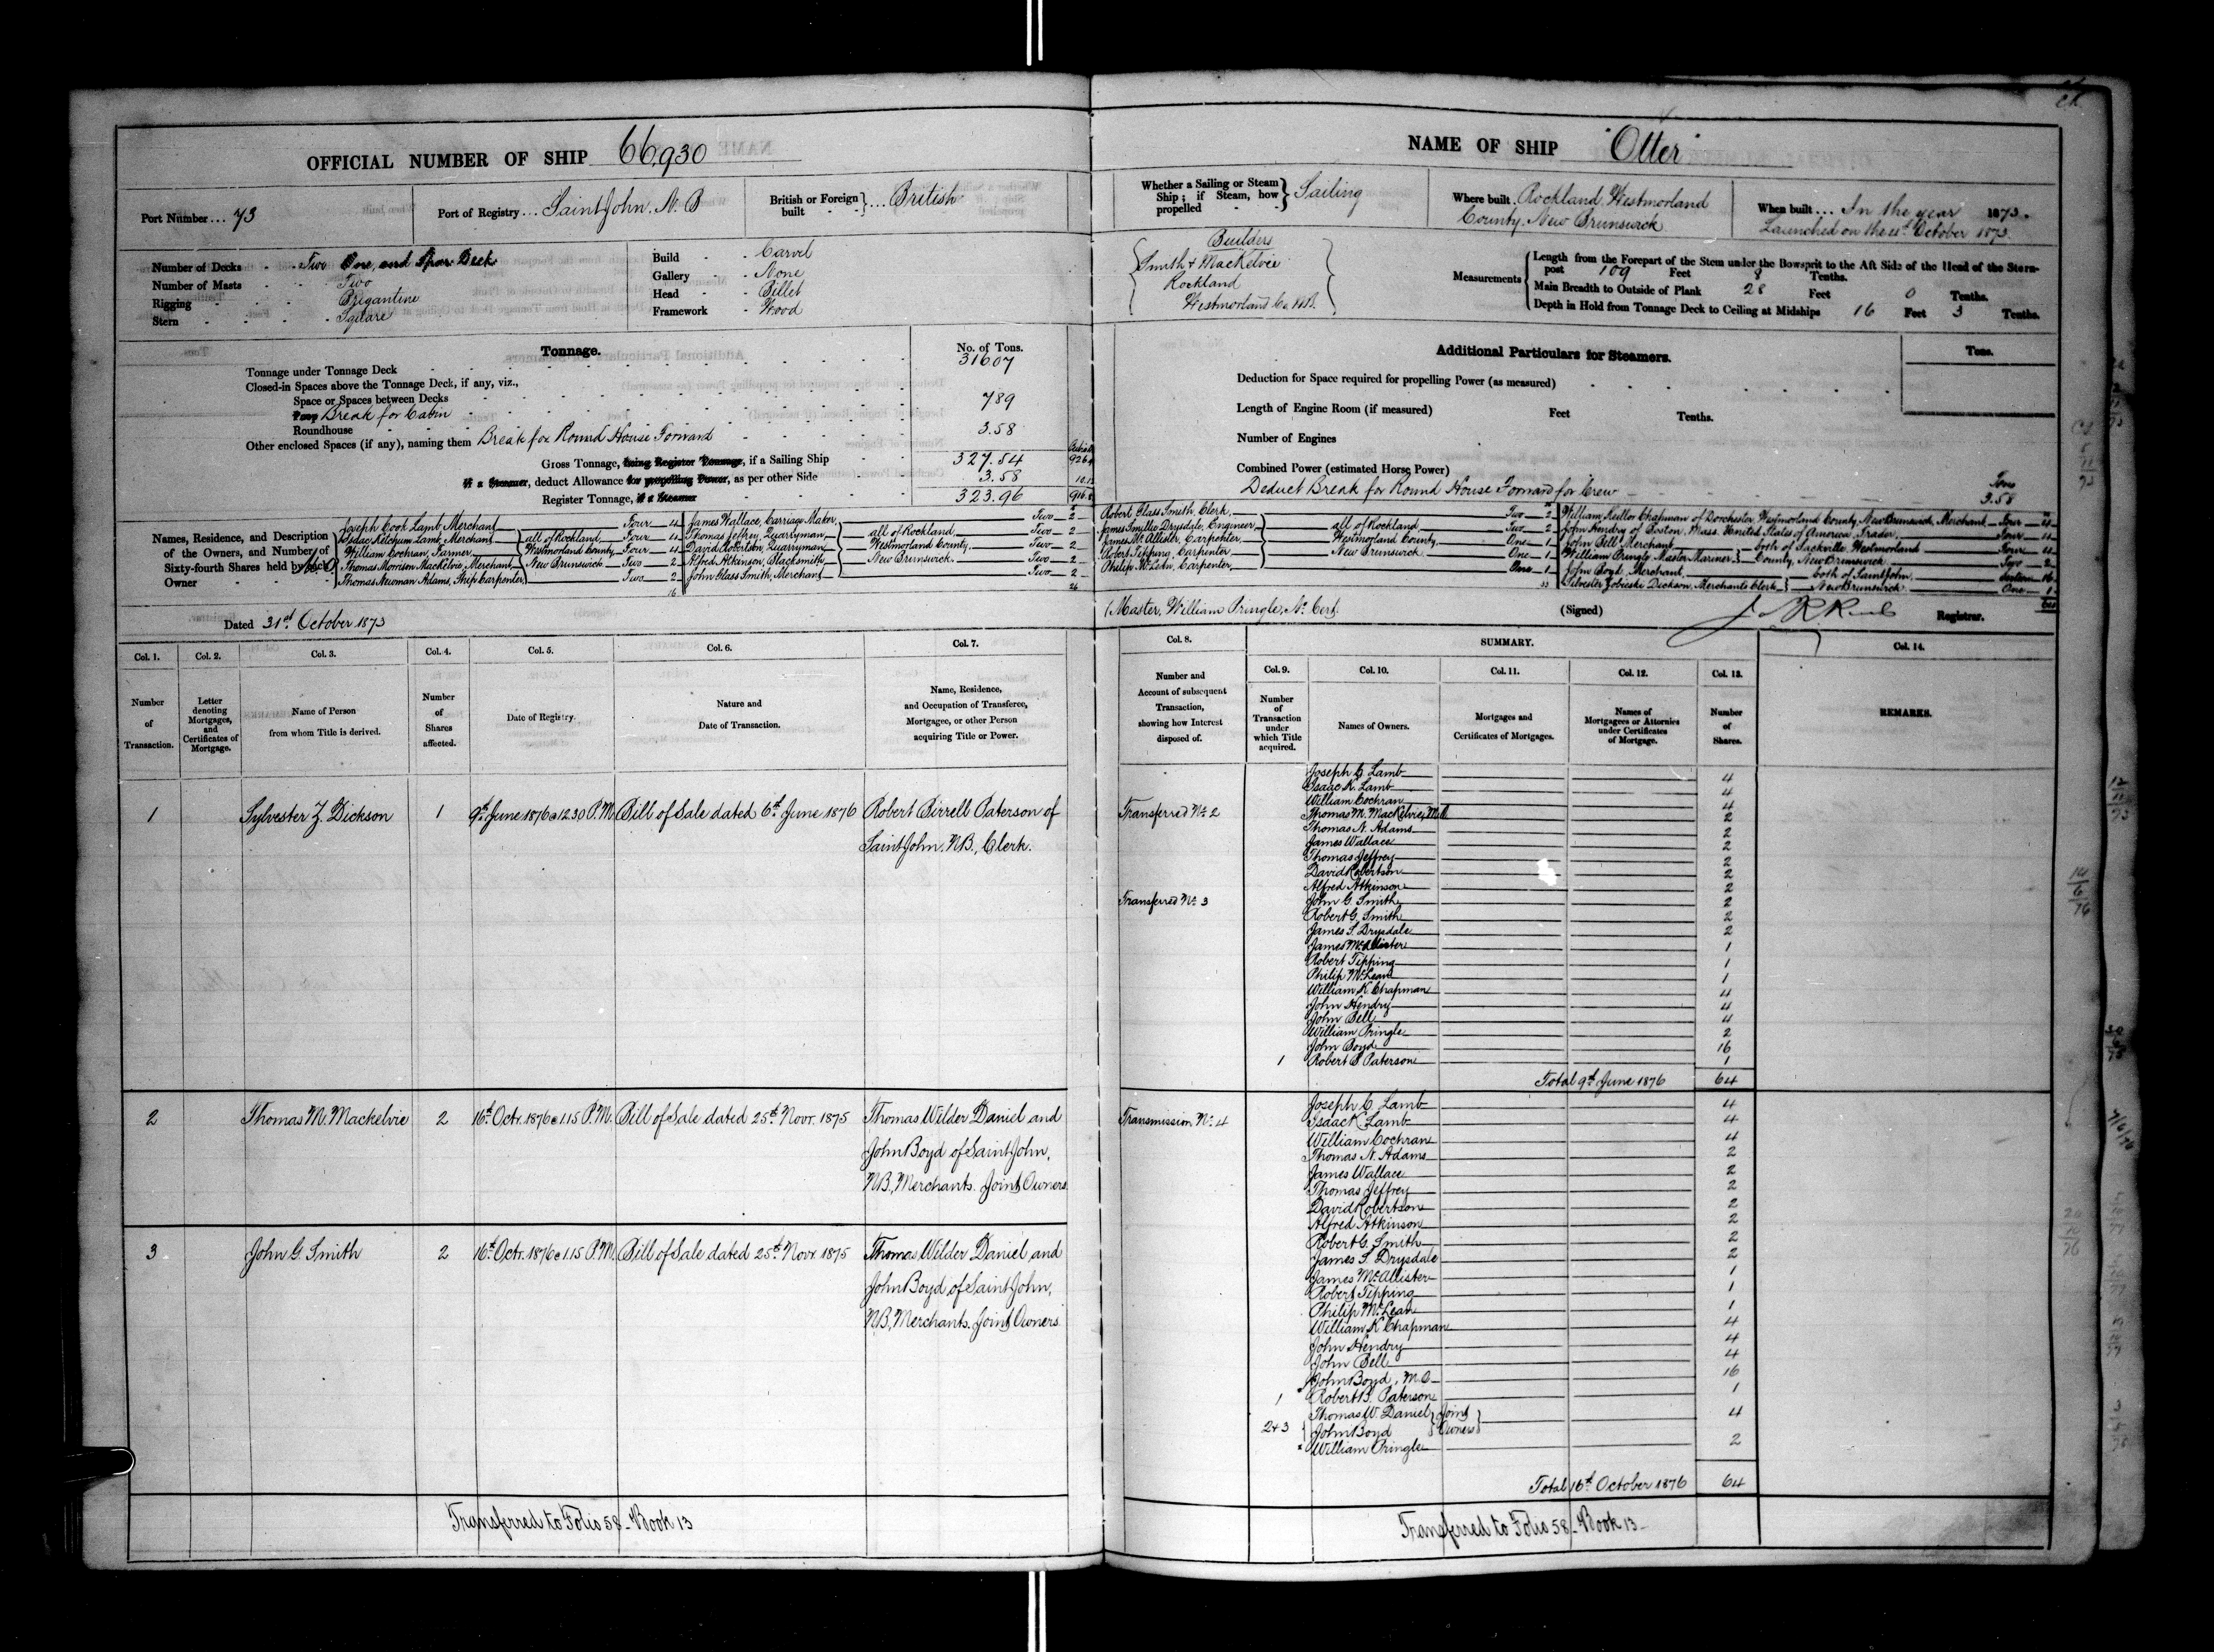 OFFICIAL NUMBER OF SHIP 66,930
Port Number... 73
Port of Registry... Saint John, N. B
British or Foreign built } ... British
Number of Decks - - Two One, and Spar Deck
Number of Masts - - Two
Rigging - - Brigantine
Stern - - - - Square
Build - - Carvel
Gallery - - None
Head - - Billet
Framework - Wood
Tonnage.
No. of Tons.
Tonnage under Tonnage Deck 316.07
Closed-in Spaces above the Tonnage Deck, if any, viz.,
Space or Spaces between Decks
Poop Break for Cabin 7.89
Roundhouse
Other enclosed Spaces (if any), naming them Break for Round House Forward 3.58
Gross Tonnage, being Register Tonnage, if a Sailing Ship 327.54
if a Steamer, deduct Allowance for propelling Power, as per other Side 3.58
Register Tonnage, if a Steamer 323.96
Names, Residence, and Description
of the Owners, and Number of
Sixty-fourth Shares held by each
Owner
Joseph Cook Lamb, Merchant Four 4
Isaac Ketchum Lamb, Merchant } all of Rockland, Four 4
William Cochran, Farmer } Westmorland County, Four 4
Thomas Morrison Mackelvie, Merchant } New Brunswick Two 2
Thomas Newman Adams, Ship Carpenter Two 2
16
James Wallace, Carriage Maker Two 2
Thomas Jeffrey, Quarryman } all of Rockland, Two 2
David Robertson, Quarryman } Westmorland County, Two 2
Alfred Atkinson, Blacksmith } New Brunswick Two 2
John Glass Smith, Merchant Two 2
26
Dated 31st October 1873
NAME OF SHIP "Otter"
Whether a Sailing or Steam Ship; if Steam, how propelled } Sailing
Where built Rockland, Westmorland
County, New Brunswick
When built ... In the year 1873.
Launched on the 21st October 1873.
Builders
Smith & Mackelvie
Rockland
Westmorland Co. N.B.
Measurements
Length from the Forepart of the Stem under the Bowsprit to the Aft Side of the Head of the Stern-
post 109 Feet 8 Tenths.
Main Breadth to Outside of Plank 28 Feet 0 Tenths.
Depth in Hold from Tonnage Deck to Ceiling at Midships 16 Feet 3 Tenths.
Additional Particulars for Steamers.
Tons.
Deduction for Space required for propelling Power (as measured)
Length of Engine Room (if measured) Feet Tenths.
Number of Engines
Combined Power (estimated Horse Power)
Deduct Break for Round House Forward for Crew Tons 3.58
Robert Glass Smith, Clerk Two 2
James Smillie Drysdale, Engineer } all of Rockland Two 2
James McAllister, Carpenter } Westmorland County, One 1
Robert Tipping, Carpenter } New Brunswick One 1
Philip McLean, Carpenter One 1
33
William Keillor Chapman of Dorchester, Westmorland County, New Brunswick, Merchant Four 4
John Hendry of Boston, Mass. United States of America, Trader Four 4
John Bell, Merchant } both of Sackville, Westmorland Four 4
William Pringle, Master Mariner } County, New Brunswick Two 2
John Boyd, Merchant } both of Saint John, Sixteen 16
Silvester Zobieski Dickson, Merchants Clerk } New Brunswick One 1
64
(Master, William Pringle, No. Cert.
(Signed)
Registrar.
Col. 1. Number of Transaction.
Col. 2. Letter denoting Mortgages, and Certificates of Mortgage.
Col. 3. Name of Person from whom Title is derived.
Col. 4. Number of Shares affected.
Col. 5. Date of Registry.
Col. 6. Nature and Date of Transaction.
Col. 7. Name, Residence, and Occupation of Transferee, Mortgagee, or other Person acquiring Title or Power.
Col. 8. Number and Account of subsequent Transaction, showing how Interest disposed of.
SUMMARY.
Col. 9. Number of Transaction under which Title acquired.
Col. 10. Names of Owners.
Col. 11. Mortgages and Certificates of Mortgages.
Col. 12. Names of Mortgagees or Attornies under Certificates of Mortgage.
Col. 13. Number of Shares.
Col. 14.
REMARKS.
1 Sylvester Z. Dickson 1 9th June 1876 @ 12.30 P.M. Bill of Sale dated 6th June 1876 Robert Birrell Paterson of
Saint John, N.B., Clerk.
2 Thomas M. Mackelvie 2 16th Octr. 1876 @ 1.15 P.M. Bill of Sale dated 25th Novr. 1875 Thomas Wilder Daniel and
John Boyd of Saint John,
N.B., Merchants. Joint Owners
3 John G. Smith 2 16th Octr. 1876 @ 1.15 P.M. Bill of Sale dated 25th Novr. 1875 Thomas Wilder Daniel and
John Boyd of Saint John,
N.B., Merchants. Joint Owners
Transferred to Folio 58 - Book 13
Joseph C Lamb 4
Isaac K. Lamb 4
William Cochran 4
Transferred No. 2 Thomas M. Mackelvie 2
Thomas N. Adams 2
James Wallace 2
Thomas Jeffrey 2
David Robertson 2
Alfred Atkinson 2
Transferred No. 3 John G. Smith 2
Robert G. Smith 2
James S. Drysdale 2
James McAllister 1
Robert Tipping 1
Philip McLean 1
William K Chapman 4
John Hendry 4
John Bell 4
William Pringle 2
John Boyd 16
1 Robert B Paterson 1
Total 9th June 1876 64
Joseph C Lamb 4
Transmission No. 4 Isaac K Lamb 4
William Cochran 4
Thomas N. Adams 2
James Wallace 2
Thomas Jeffrey 2
David Robertson 2
Alfred Atkinson 2
Robert G. Smith 2
James S. Drysdale 2
James McAllister 1
Robert Tipping 1
Philip McLean 1
William K Chapman 4
John Hendry 4
John Bell 4
John Boyd, M.O. 16
1 Robert B. Paterson 1
2+3 Thomas W. Daniel } Joint 4
John Boyd } Owners
William Pringle 2
Total 16th October 1876 64
Transferred to Folio 58 - Book 13